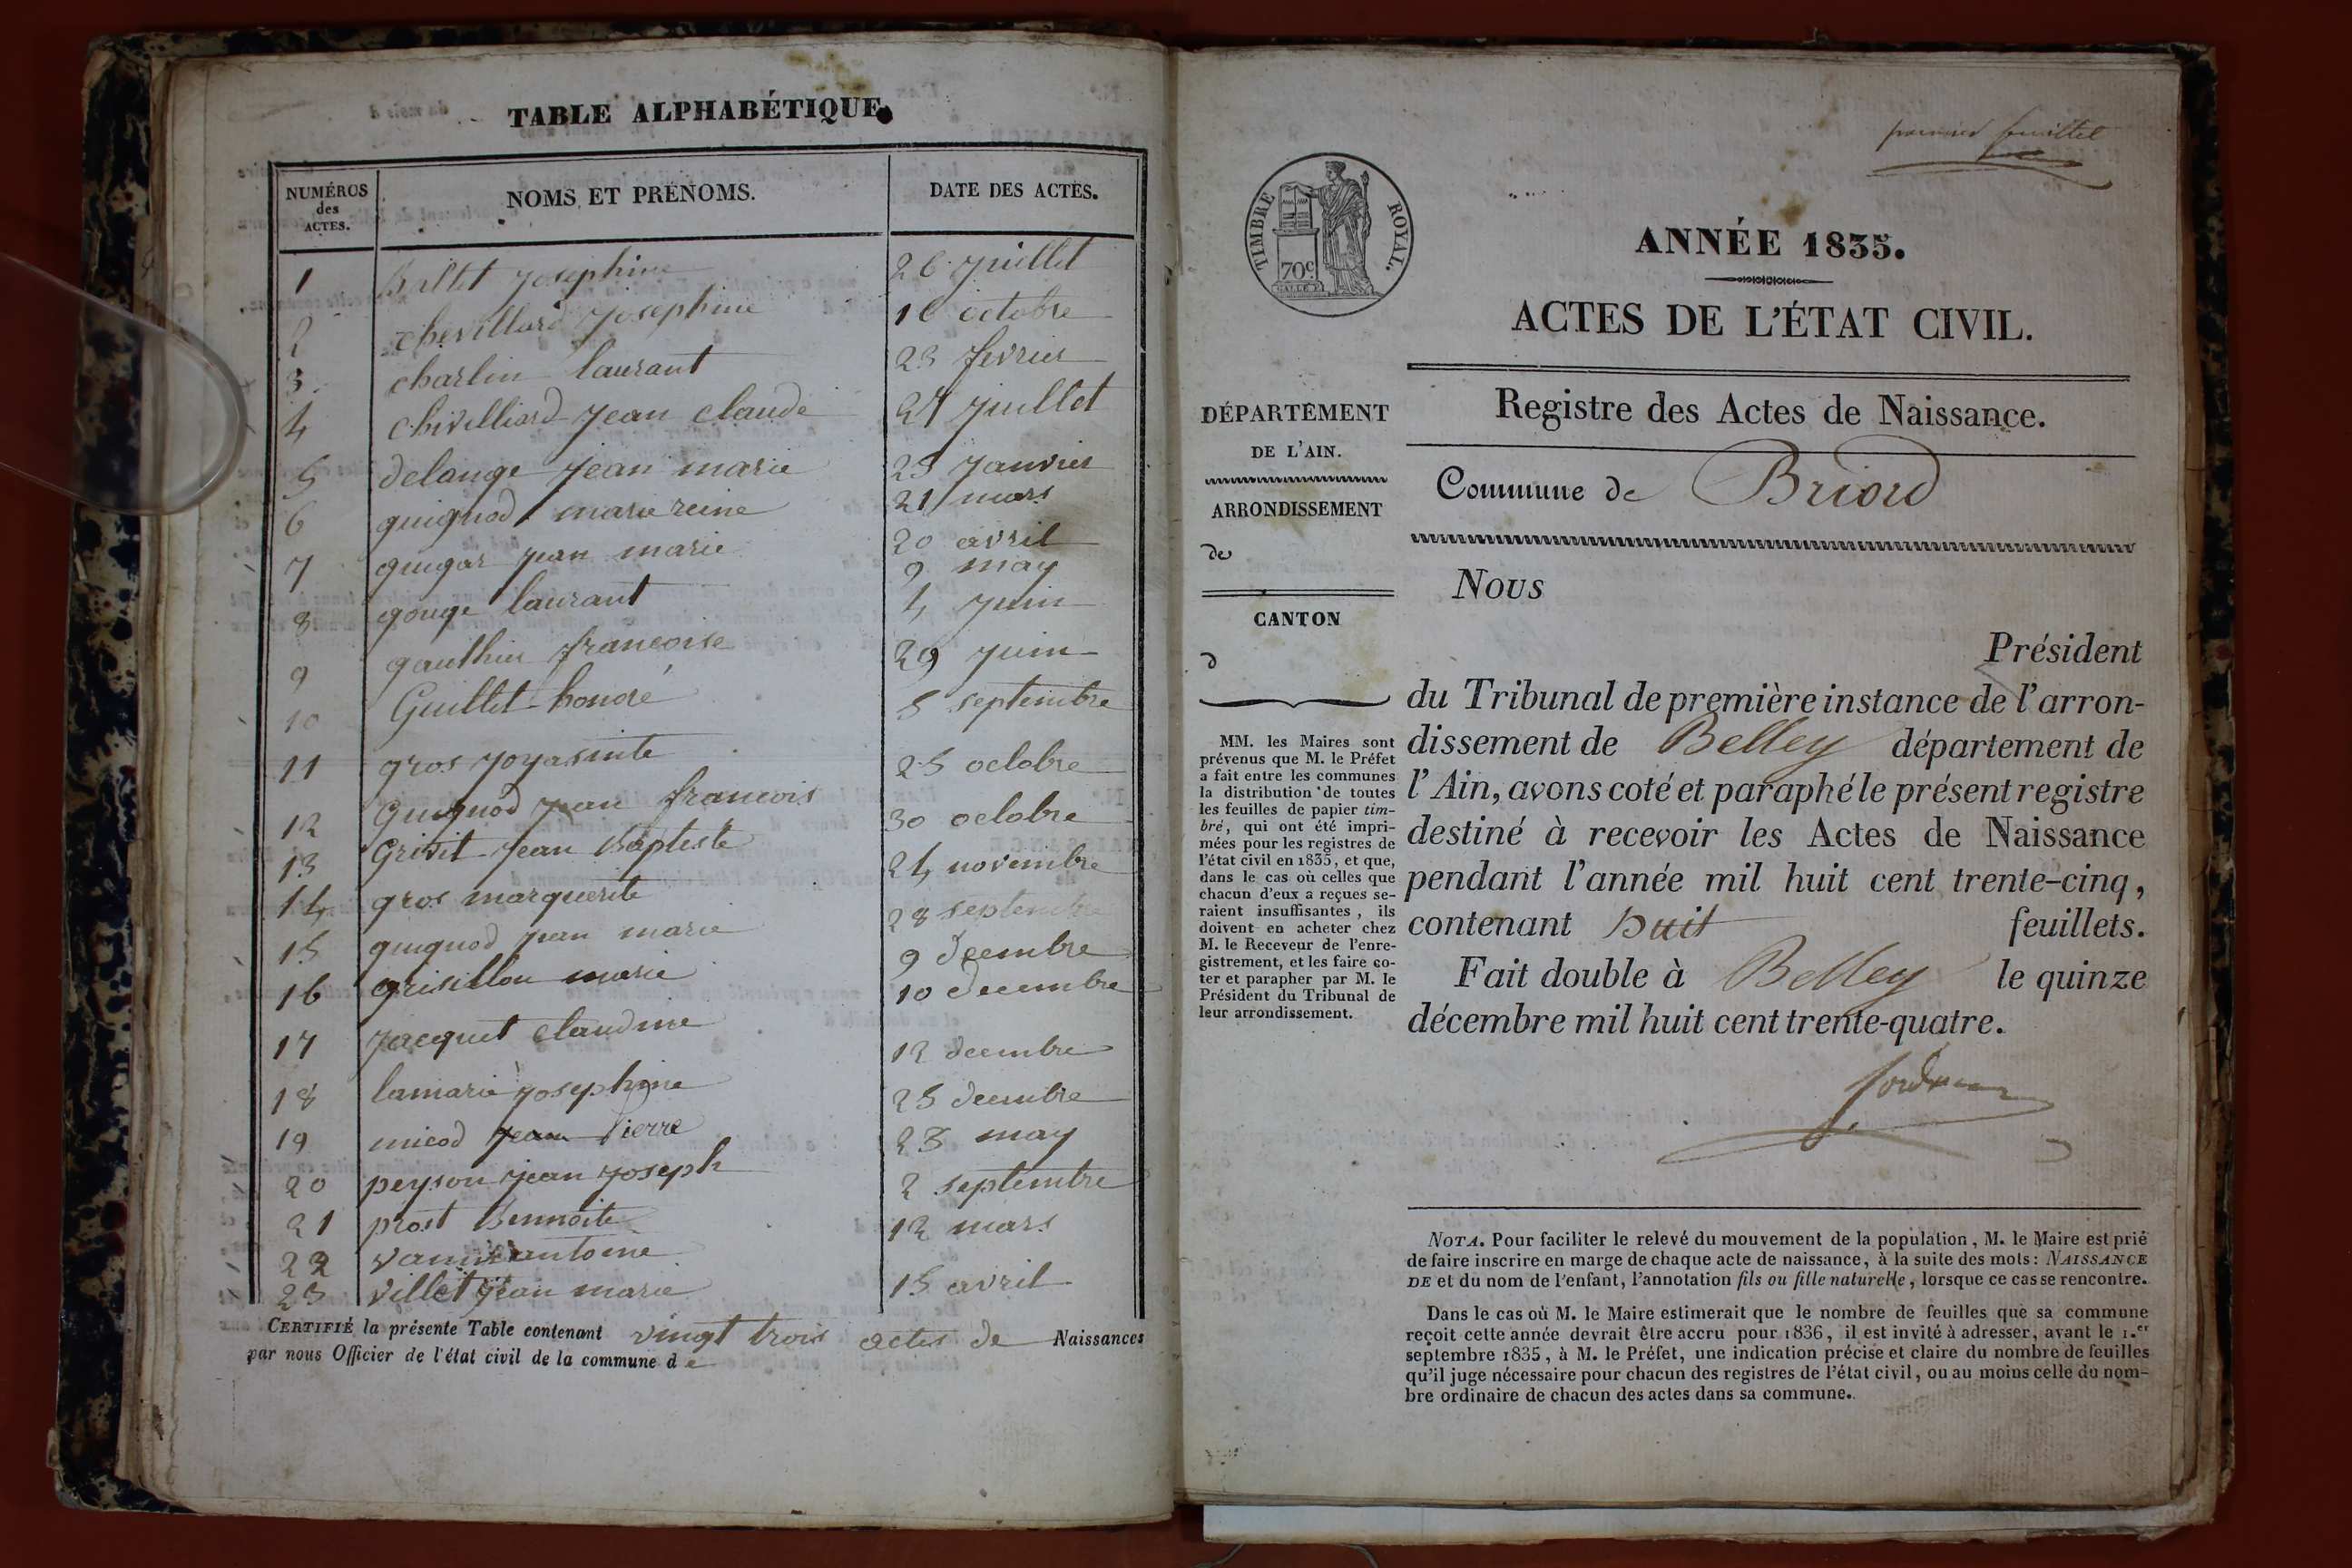 TABLE ALPHABÉTIQUE.
NUMÉROS des ACTES. NOMS ET PRÉNOMS. DATE DES ACTES.
1 Ballet Josephine 26 juillet
2 chevillard Josephine 16 octobre
3 charlin laurant 23 fevrier
4 chivilliard Jean claude 27 juillet
5 delange Jean marie 25 Janvier
6 guignod marie reine 21 mars
7 guigar jean marie 20 avril
8 gouge laurant 9 may
4 juin
9 gauthier francoise 29 juin
10 Guillet honoré 5 septembre
11 gros yoyasinte 25 octobre
12 Guignod jean francois 30 octobre
13 Grivit Jean Baptiste 24 novembre
14 gros marguerite 28 septembre
15 guignod jean marie 9 decembre
16 grisillon marie 10 decembre
17 Jacquet Claudine 12 decembre
18 lamarie josephine 25 decembre
19 micod Jean Pierre 23 may
20 peyson jean joseph 2 septembre
21 prost Bennoite 12 mars
22 antoine
23 Villet Jean marie 15 avril
CERTIFIÉ la présente Table contenant vingt trois actes de Naissances
par nous Officier de l'état civil de la commune de
premier feuillet
TIMBRE ROYAL.
70c
ANNÉE 1835.
ACTES DE L'ÉTAT CIVIL.
Registre des Actes de Naissance.
DÉPARTEMENT
DE L'AIN.
ARRONDISSEMENT
de
CANTON
d
MM. les Maires sont
prévenus que M. le Préfet
a fait entre les communes
la distribution de toutes
les feuilles de papier tim-
bré, qui ont été impri-
mées pour les registres de
l'état civil en 1835, et que,
dans le cas où celles que
chacun d'eux a reçues se-
raient insuffisantes, ils
doivent en acheter chez
M. le Receveur de l'enre-
gistrement, et les faire co-
ter et parapher par M. le
Président du Tribunal de
leur arrondissement.
Commune de Briord
Nous
Président
du Tribunal de première instance de l'arron-
dissement de Belley département de
l'Ain, avons coté et paraphé le présent registre
destiné à recevoir les Actes de Naissance
pendant l'année mil huit cent trente-cinq,
contenant huit feuillets.
Fait double à Belley le quinze
décembre mil huit cent trente-quatre.
NOTA. Pour faciliter le relevé du mouvement de la population, M. le Maire est prié
de faire inscrire en marge de chaque acte de naissance, à la suite des mots: NAISSANCE
DE et du nom de l'enfant, l'annotation fils ou fille naturelle, lorsque ce cas se rencontre.
Dans le cas où M. le Maire estimerait que le nombre de feuilles que sa commune
reçoit cette année devrait être accru pour 1836, il est invité à adresser, avant le 1.er
septembre 1835, à M. le Préfet, une indication précise et claire du nombre de feuilles
qu'il juge nécessaire pour chacun des registres de l'état civil, ou au moins celle du nom-
bre ordinaire de chacun des actes dans sa commune.